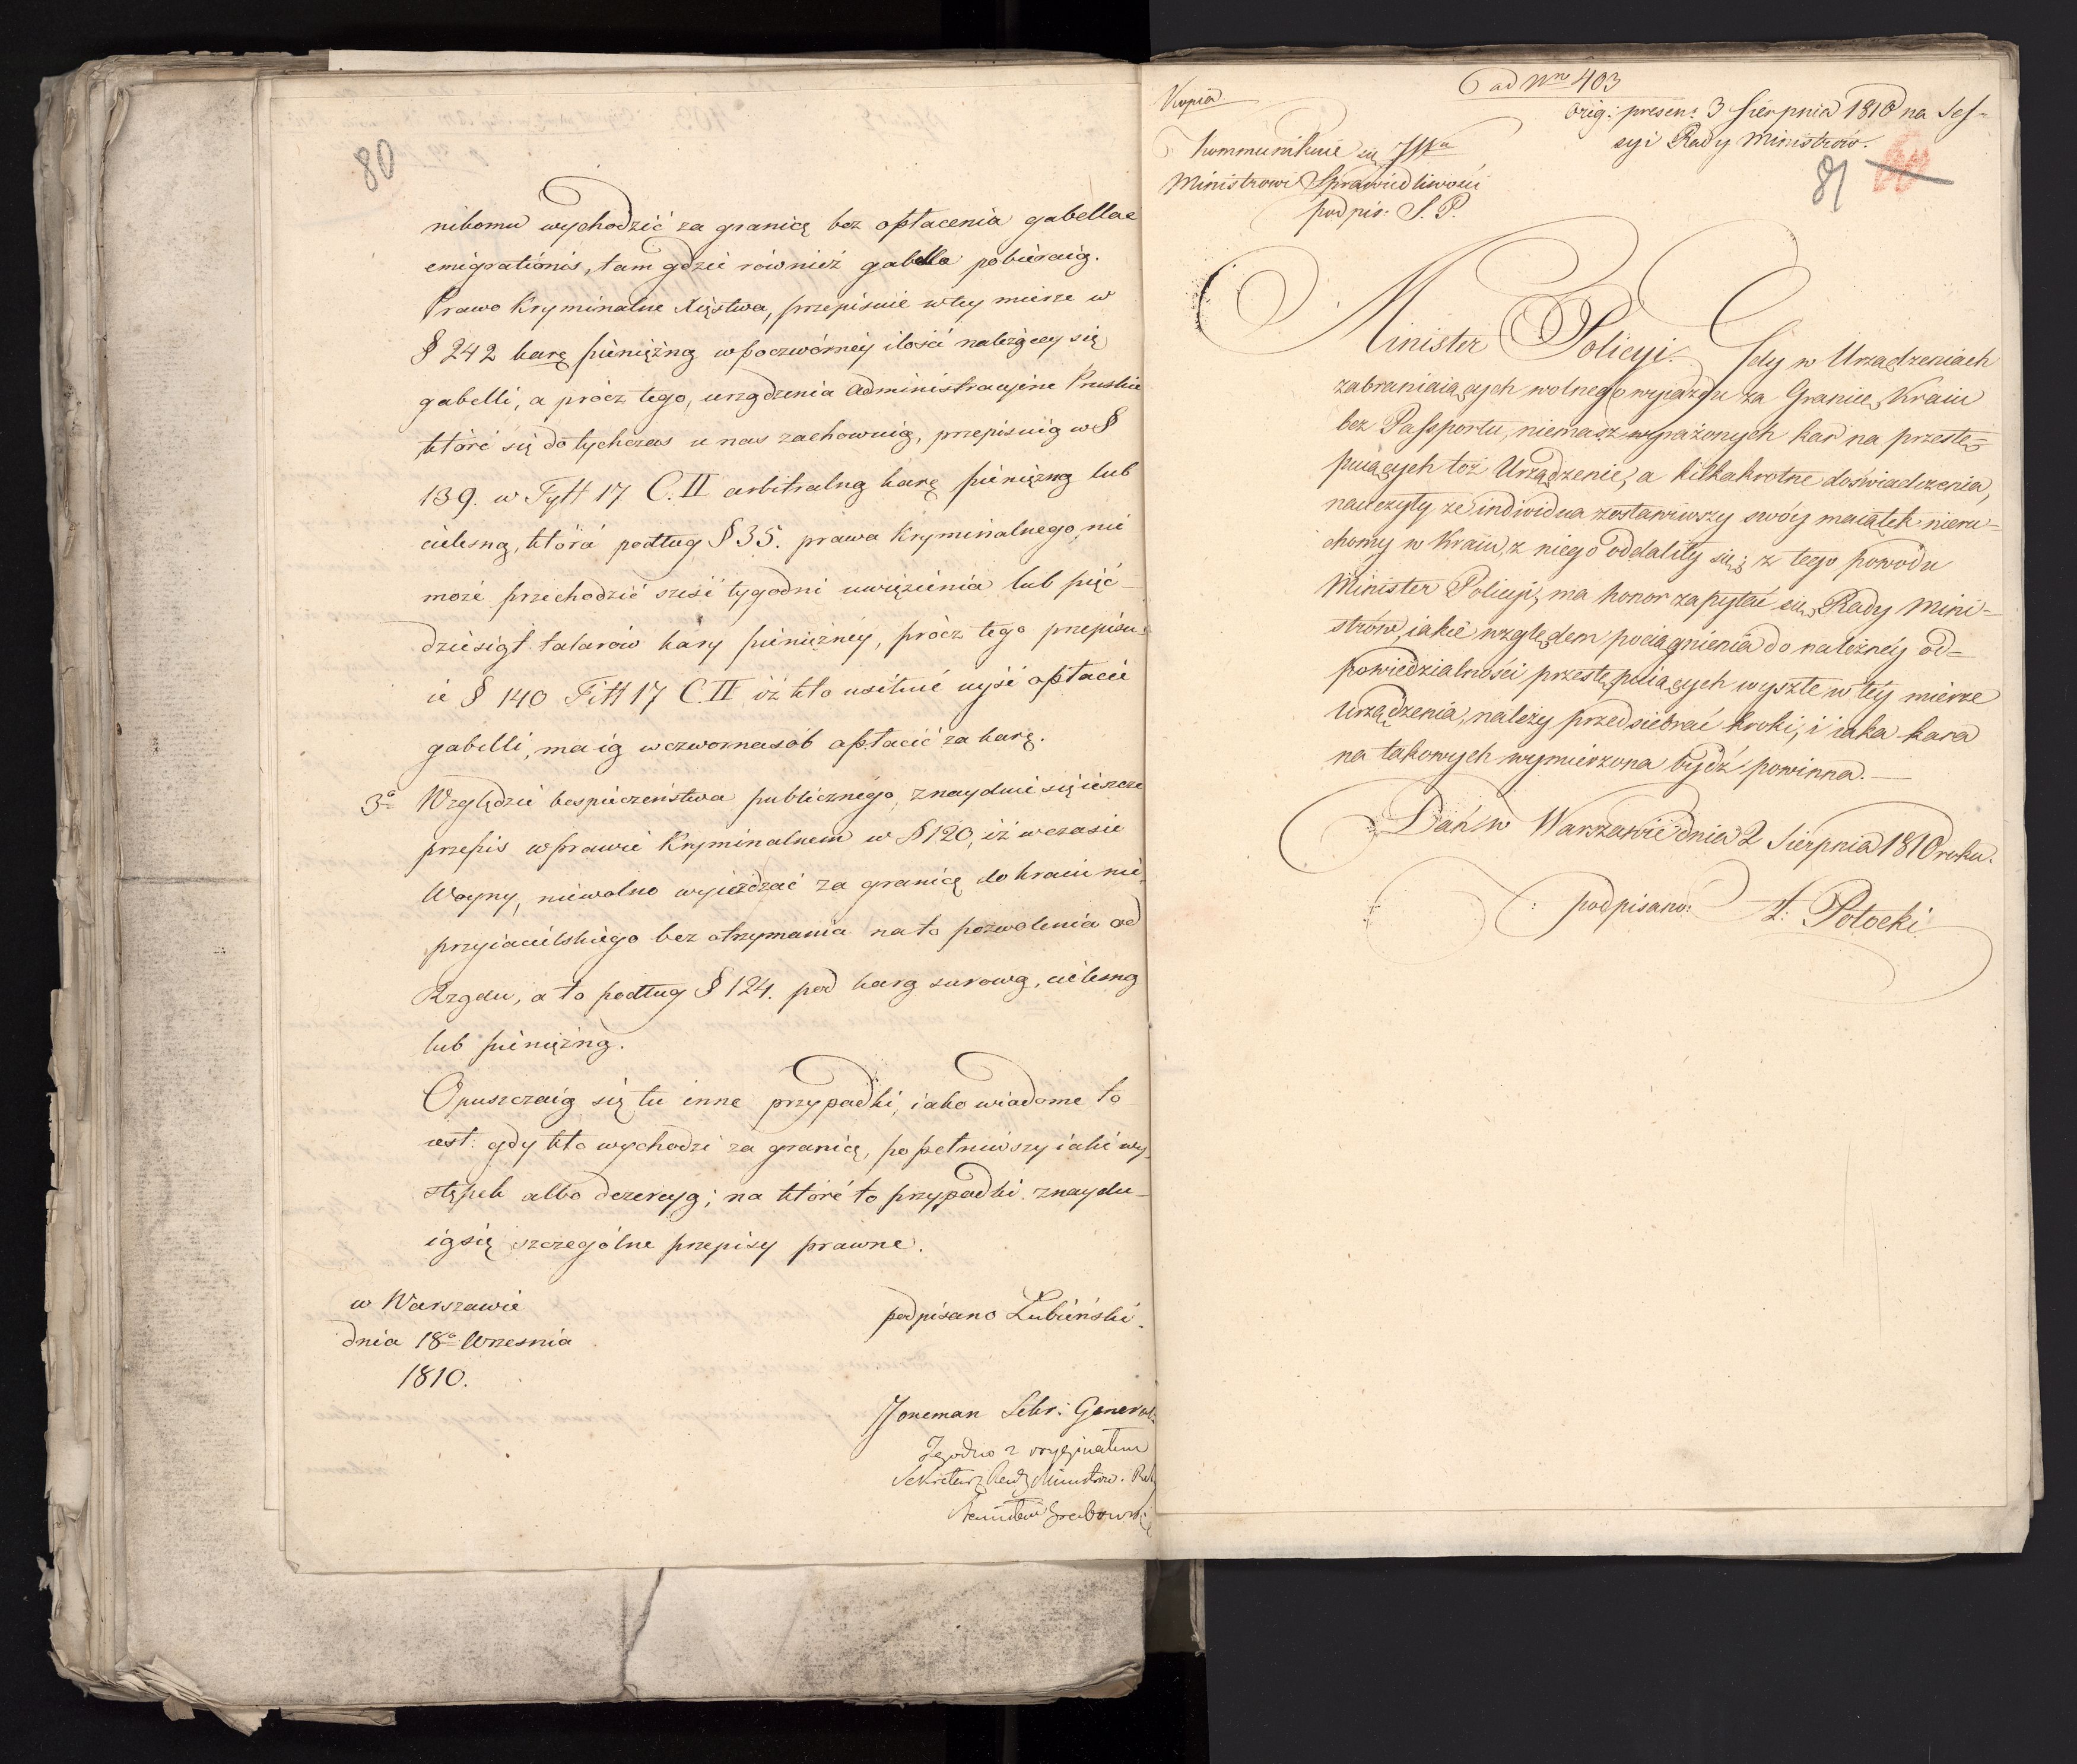 80
nikomu wychodzić za granicę bez opłacenia gabellae
emigrationis, tam gdzie również gabella pobieraią.
Prawo Kryminalne Xięstwa, przepisuie w tey mierze w
§ 242 karę pieniężną w poczwórney ilości należącey się
gabelli, a prócz tego, urządzenia administracyine Pruskie
które się dotychczas u nas zachowuią, przepisuią w §
139. w Tytt 17 C. II arbitralną karę pieniężną lub
cielesną, która podług § 35. prawa Kryminalnego, nie
może przechodzić sześć tygodni uwięzienia lub pięć-
dziesiąt talarów kary pieniężney, prócz tego przepisu-
ie § 140 Titt 17 C. II iż kto usiłuie uyść opłacie
gabelli, maią w czwornasób opłacić za karę.
3o Względzie bespieczeństwa publicznego, znayduie się ieszcze
przepis w prawie Kryminalnem w § 120, iż w czasie
Woyny, niewolno wyieżdzać za granicę do kraiu nie-
przyiacielskiego bez otrzymania na to pozwolenia od
Rządu, a to podług § 124. pod karą surową, cielesną
lub pieniężną.
Opuszczaią się tu inne przypadki, iako wiadome to
iest: gdy kto wychodzi za granicę, popełniwszy iaki wy-
stępek albo dezercyą; na które to przypadki znaydu-
ią się szczególne przepisy prawne.
w Warszawie
dnia 18o Wrzesnia
1810.
podpisano Łubiński.
Joneman Sekr: General:
Zgodno z oryginałem
Sekretarz Rady Ministrow.
Stanisław Grabowski
Kopia.
ad Nrm 403
orig: presen: 3 Sierpnia 1810 na Ses-
syi Rady Ministrów.
81
Kommunikuie się JW
Ministrowi Sprawiedliwości
podpis: S. P.
Minister Policyi. Gdy w Urządzeniach
zabraniaiących wolnego wyiazdu za Granicę Kraiu
bez Passportu, niemasz wyrażonych kar na przestę=
puiących też Urządzenie, a kilkakrotne doświadczenia,
nauczyły że individua zostawiwszy swóy maiątek nieru=
chomy w Kraiu, z niego oddaliły się; z tego powodu
Minister Policyi, ma honor zapytać się Rady Mini=
strów, iakie względem pociągnienia do należney od=
powiedzialności przestępuiących wyszłe w tey mierze
Urządzenia, należy przedsiebrać kroki, i iaka kara
na takowych wymierzona bydź powinna. —
Dań w Warszawie dnia 2 Sierpnia 1810 roku.
podpisano: A: Potocki